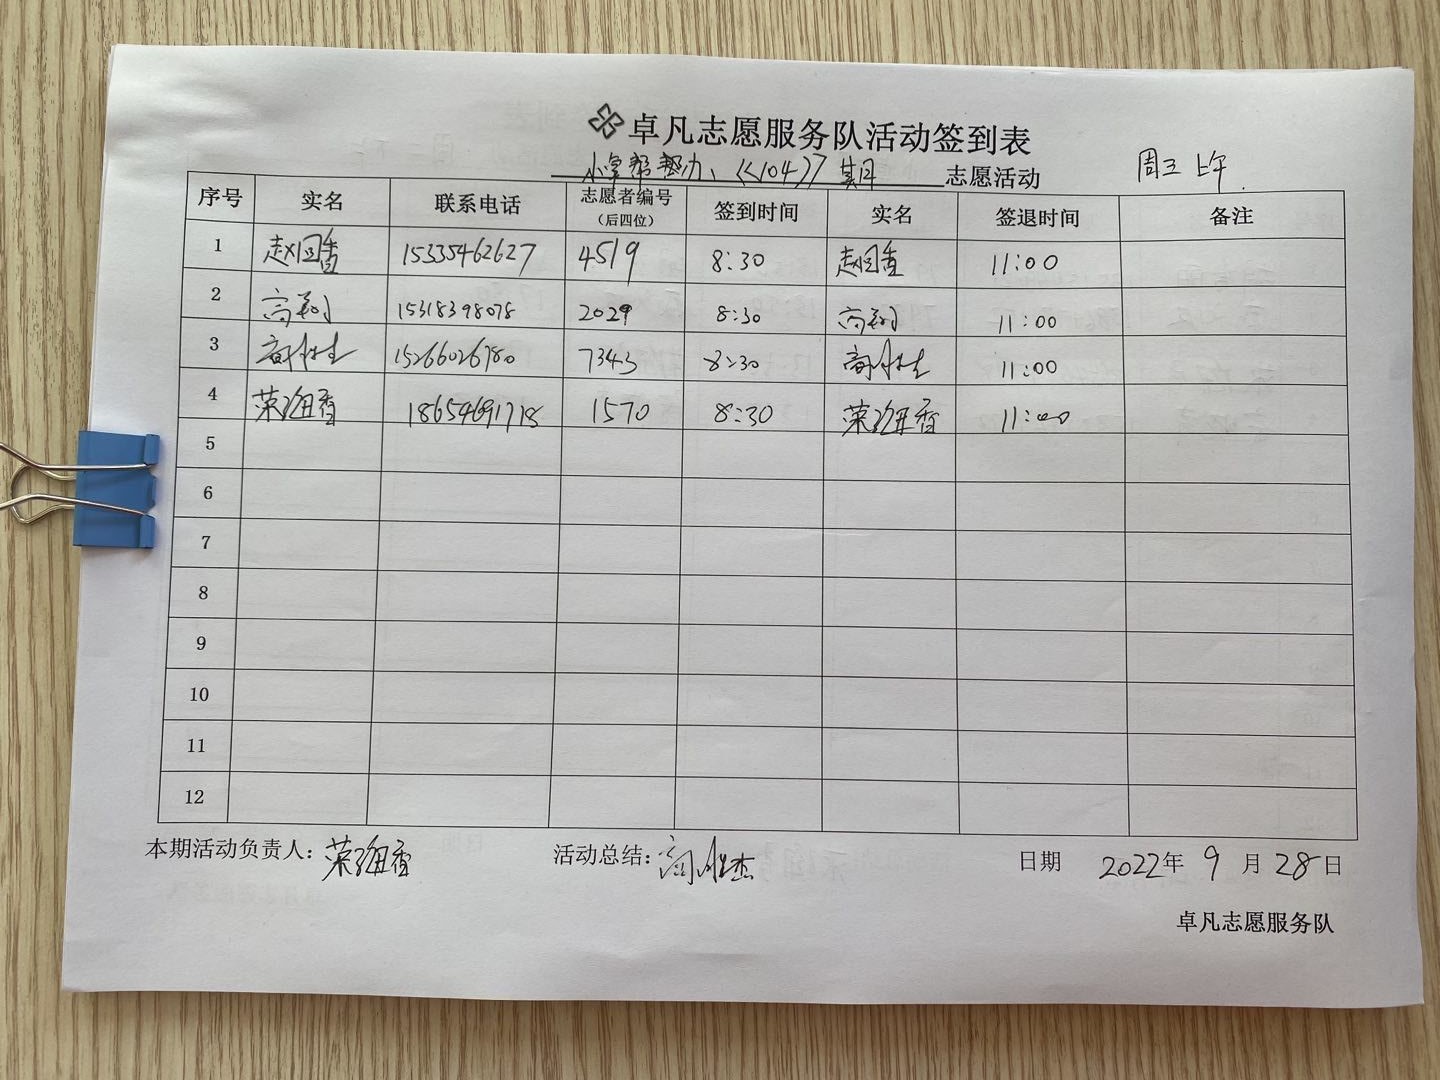 卓凡志愿服务队活动签到表
《104》期 志愿活动 周三上午
序号 实名 联系电话 志愿者编号（后四位） 签到时间 实名 签退时间 备注
1 赵国香 15335462627 4519 8:30 赵国香 11:00
2 高 15318398078 2029 8:30 高 11:00
3 15266026780 7343 8:30 11:00
4 荣 香 18654691718 1570 8:30 荣 香 11:00
5
6
7
8
9
10
11
12
本期活动负责人：荣 香 活动总结： 杰 日期 2022年9月28日
卓凡志愿服务队